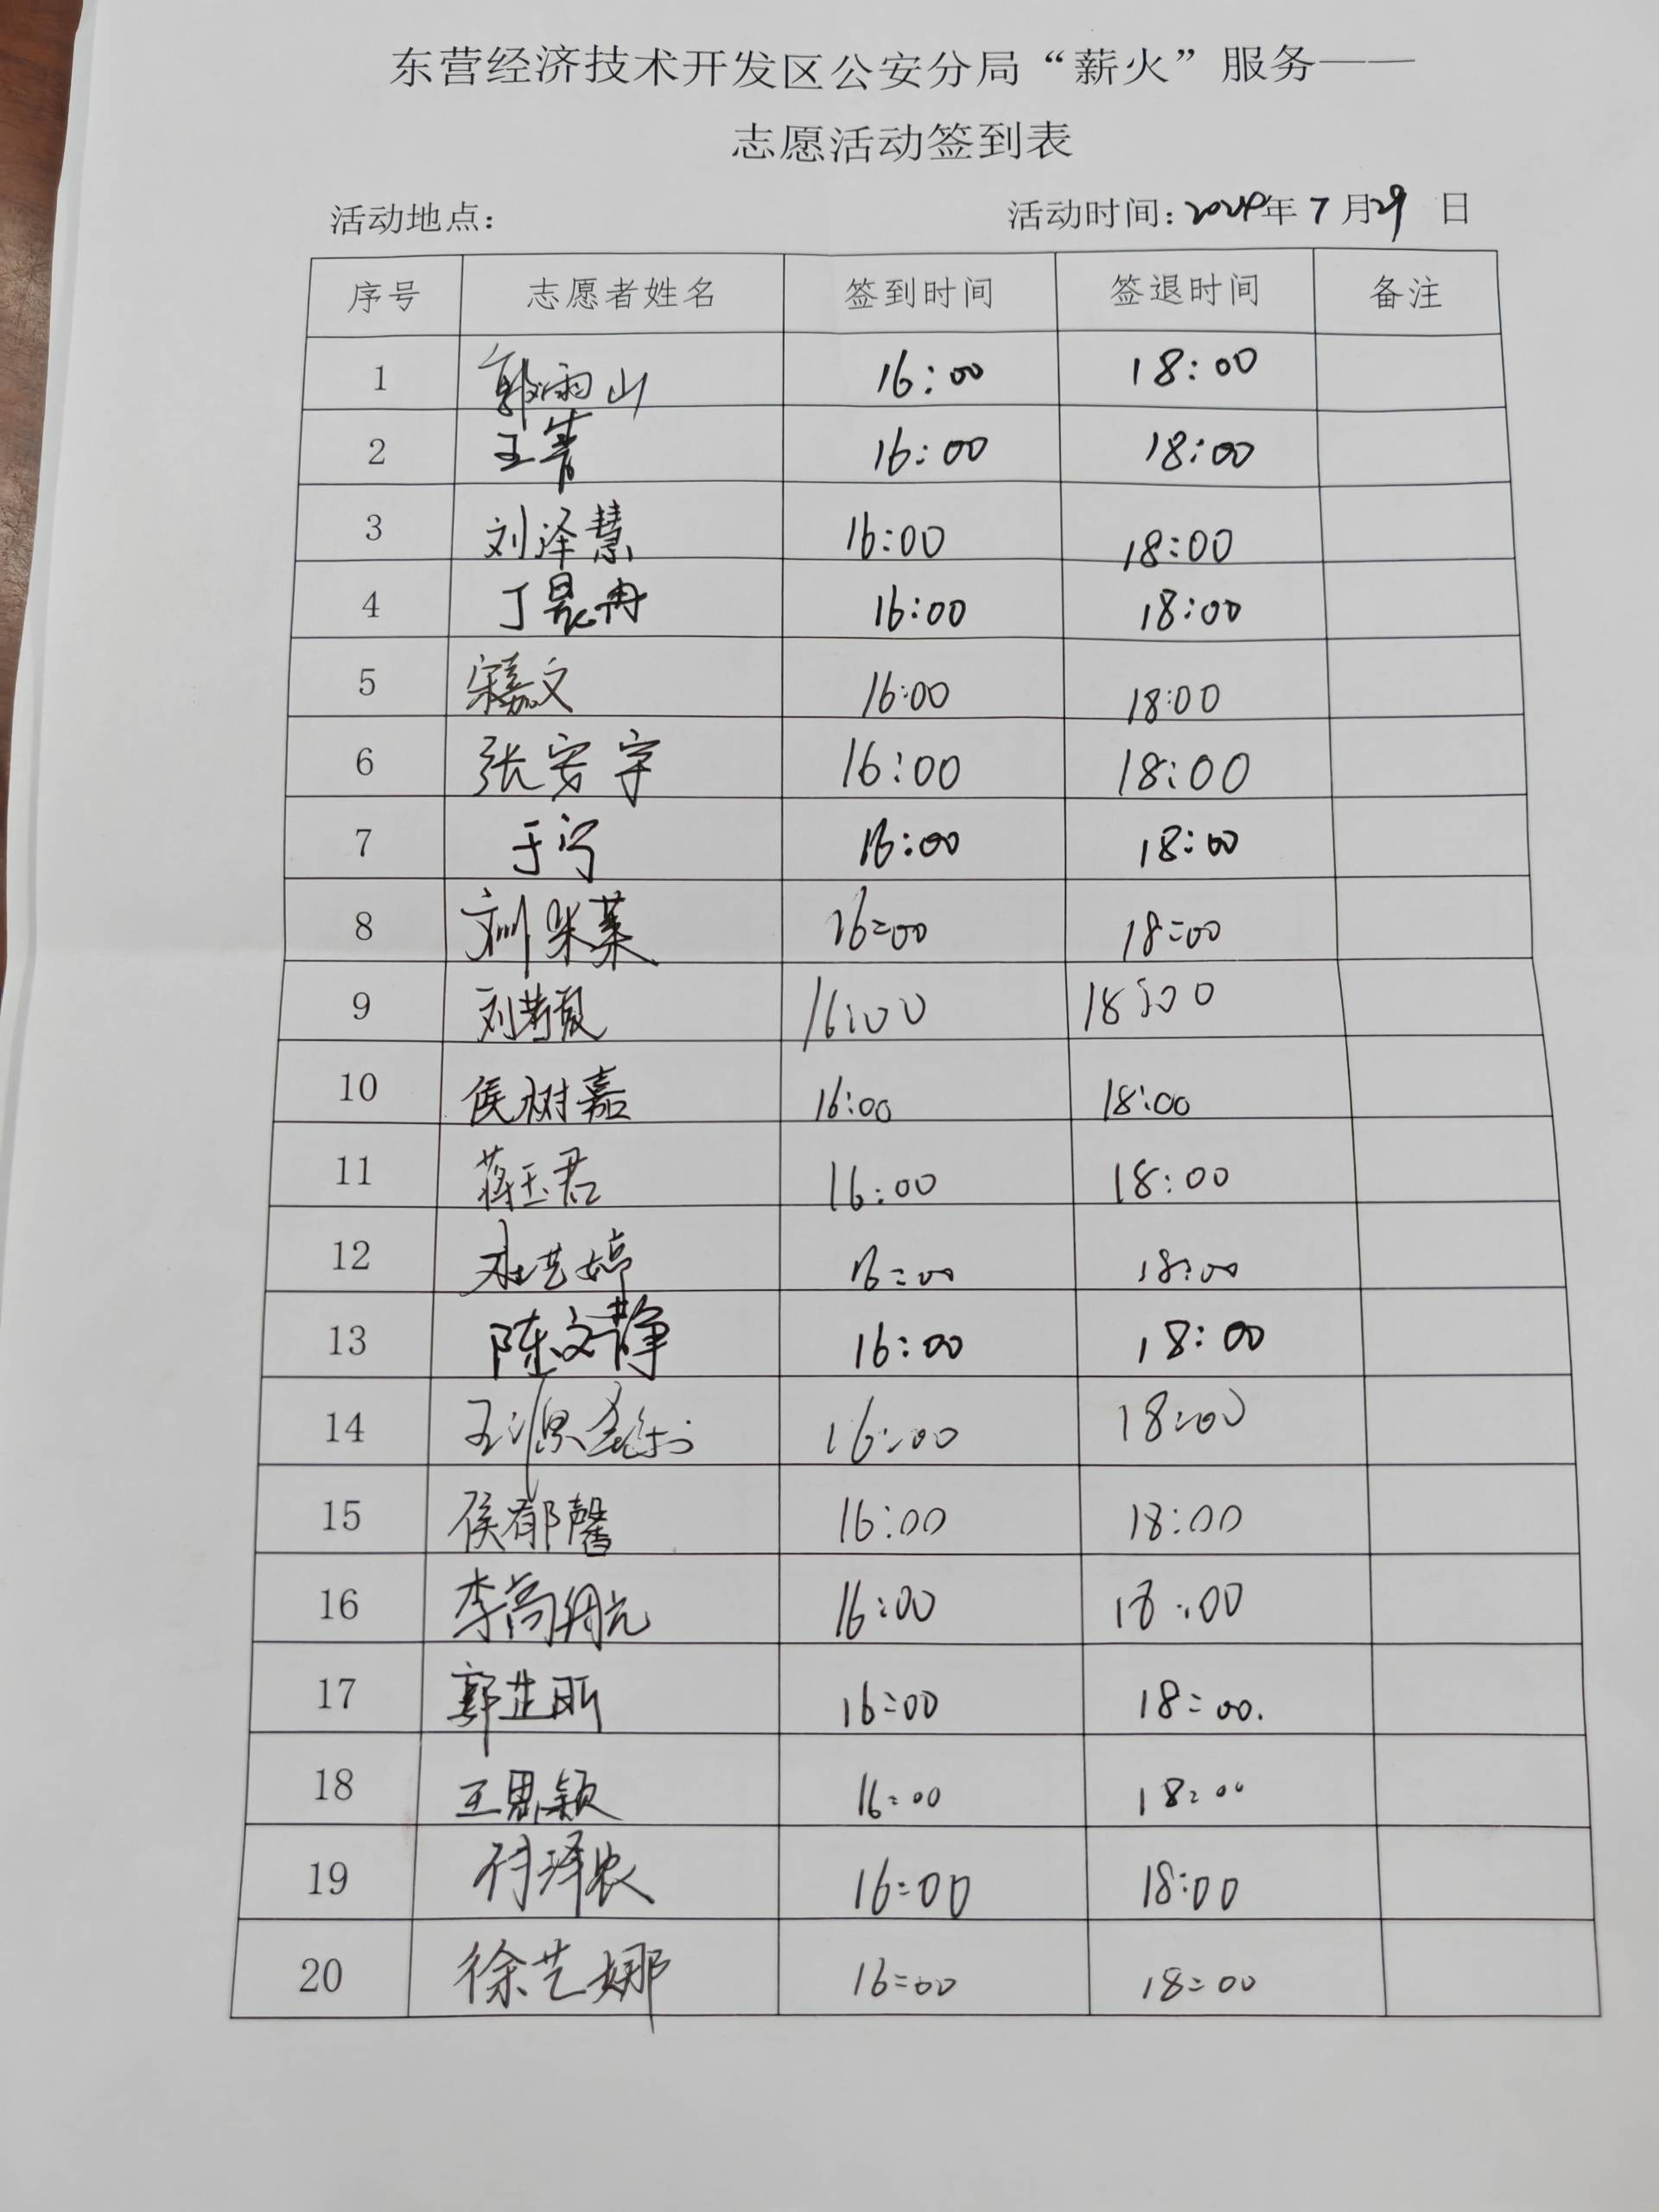 东营经济技术开发区公安分局“薪火”服务——
志愿活动签到表
活动地点： 活动时间：2024年 7 月29 日
序号 志愿者姓名 签到时间 签退时间 备注
1 郭雨山 16:00 18:00
2 王青 16:00 18:00
3 刘泽慧 16:00 18:00
4 丁晨冉 16:00 18:00
5 宋嘉文 16:00 18:00
6 张安宇 16:00 18:00
7 于宁 16:00 18:00
8 刘米莱 16:00 18:00
9 刘 16:00 18:00
10 侯树嘉 16:00 18:00
11 蒋玉君 16:00 18:00
12 杜艺婷 16:00 18:00
13 陈文静 16:00 18:00
14 王源 16:00 18:00
15 侯郁馨 16:00 18:00
16 李尚 16:00 18:00
17 郭芷昕 16:00 18:00.
18 王思颖 16:00 18:00
19 付泽农 16:00 18:00
20 徐艺娜 16:00 18:00